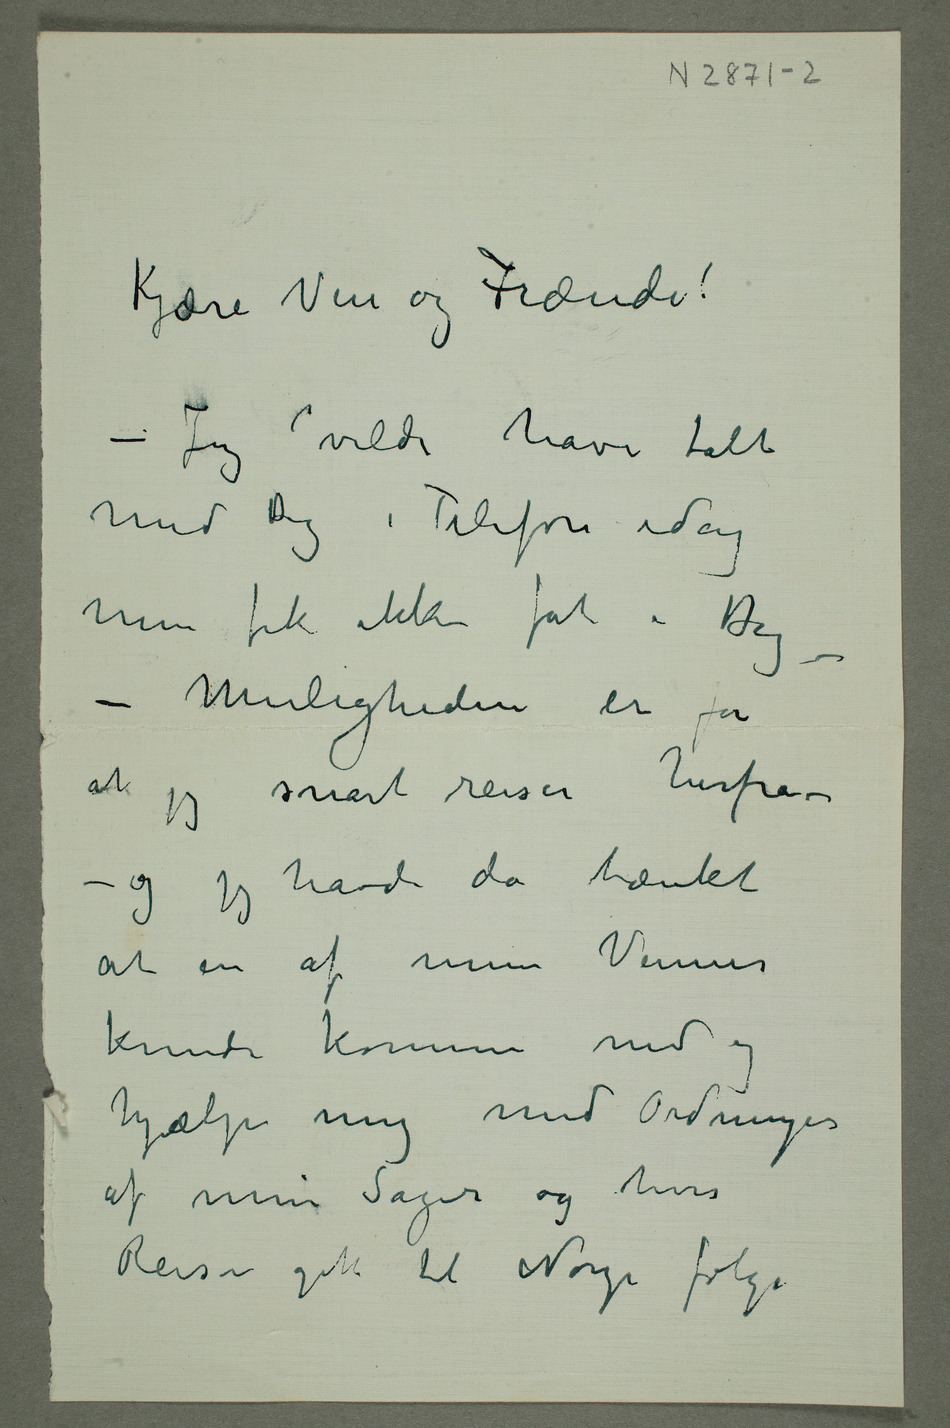 N 2871-2
Kjære Ven og Frænde!
– Jeg vilde have talt
med Dig i Telefon idag
men fik ikke fat i Dig –
– Muligheden er for
at jeg snart reiser herfra –
– og jeg havde da tænkt
at en af mine Venner
kunde komme ned og
hjælpe mig med Ordningen
af mine Sager og hvis
Reisen gik til Norge følge